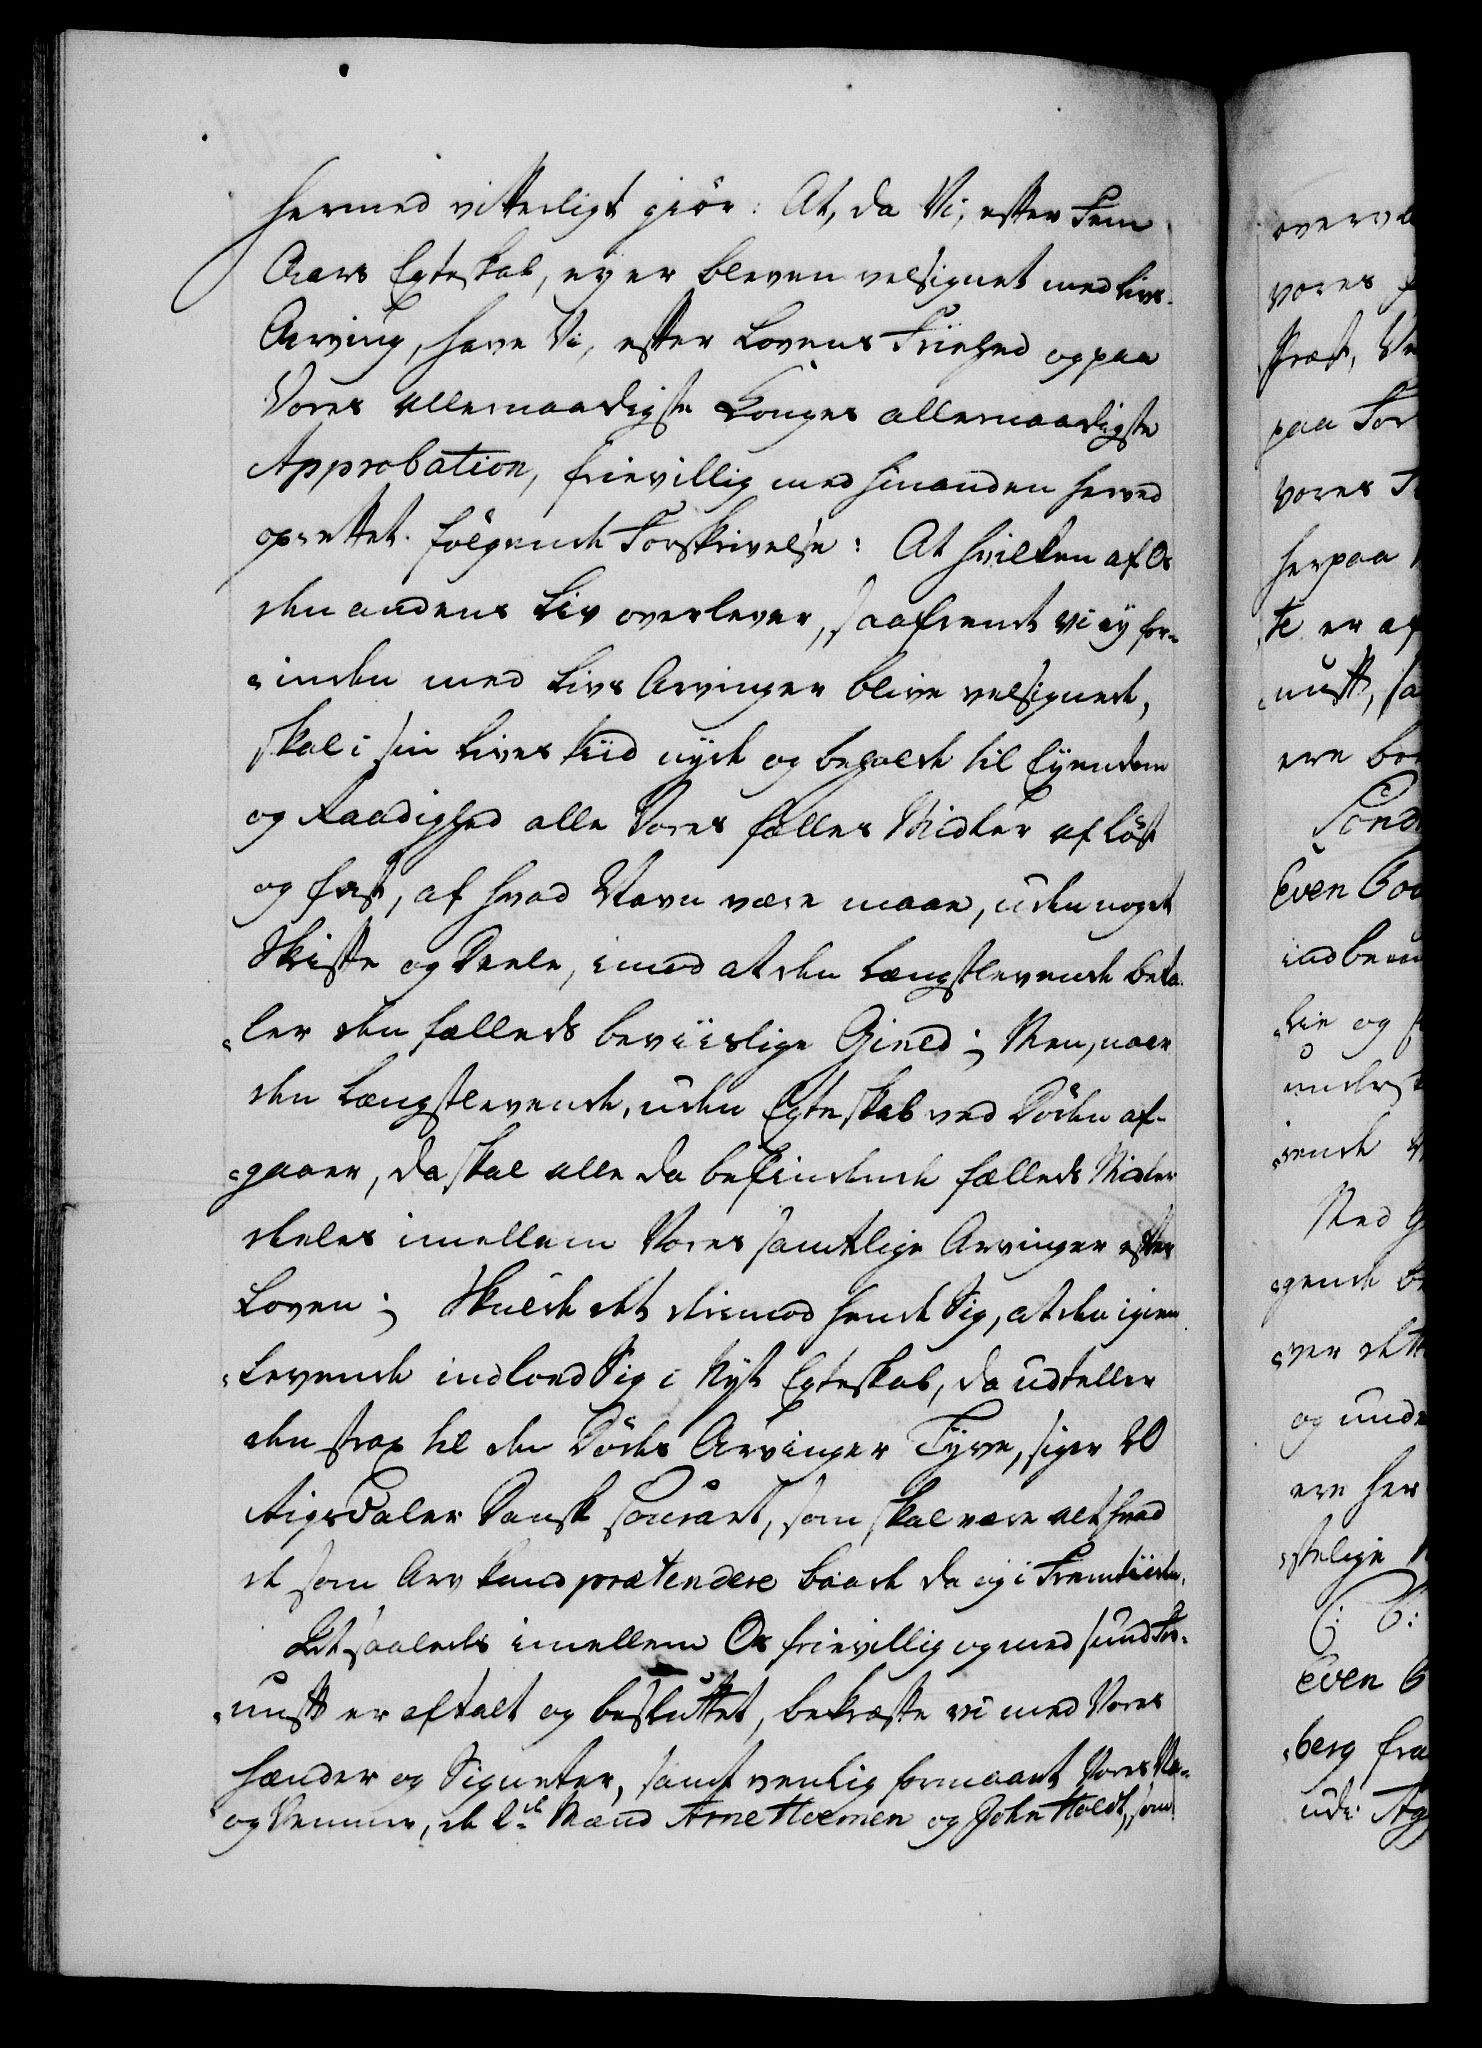 hermed vitterligt giör: At, da Vi, efter Fem
Aars Egteskab, ey er bleven velsignet med Livs-
Arving, have Vi, efter Lovens Friehed og paa
Vores allernaadigste Konges allernaadigste
Approbation, frievillig med hinanden herved
oprettet følgende Forskrivelse: At hvilken af Os
den andens Liv overlever, saafremt vi ey for-
inden med Livs Arvinger blive velsignede,
skal i sin Lives tiid nyde og beholde til Eyendom
og Raadighed alle Vores fælles Midler af løst
og fast, af hvad Navn være maae, uden noget
Skifte og Deele, imod at den Længstlevende beta-
ler den fælleds beviislige Gield; Men, naar
den Længstlevende, uden Egteskab ved Døden af-
gaaer, da skal alle da befindende fælleds Midler
deeles imellem Vores samtlige Arvinger efter
Loven; Skulde det derimod hende Sig, at den igien
Levende indlod Sig i Nyt Egteskab, da udteller
den strax til den Dødes Arvinger Tyve, siger 20
Rigsdaler Dansk Courant, som skal være alt hvad
de som Arv kand prætendere baade da og i Fremtiiden.
At saaleds imellem Os frievillig og med sund For-
nuft er aftalt og besluttet, bekræfte vi med Vores
Hænder og Signeter, samt venlig formaaet Vores Na-
og Venner, de Mænd Arne Hoemen og John Holdt, som
overv
vores
Præst, Ve
paa For
vores
herpaa
te er af
nuft, sa
ere be
Sond
Even
indbe
lie og
under
ende
Med
gende
ver dett
og unde
ere her
stelige
Even
berg fra
ude